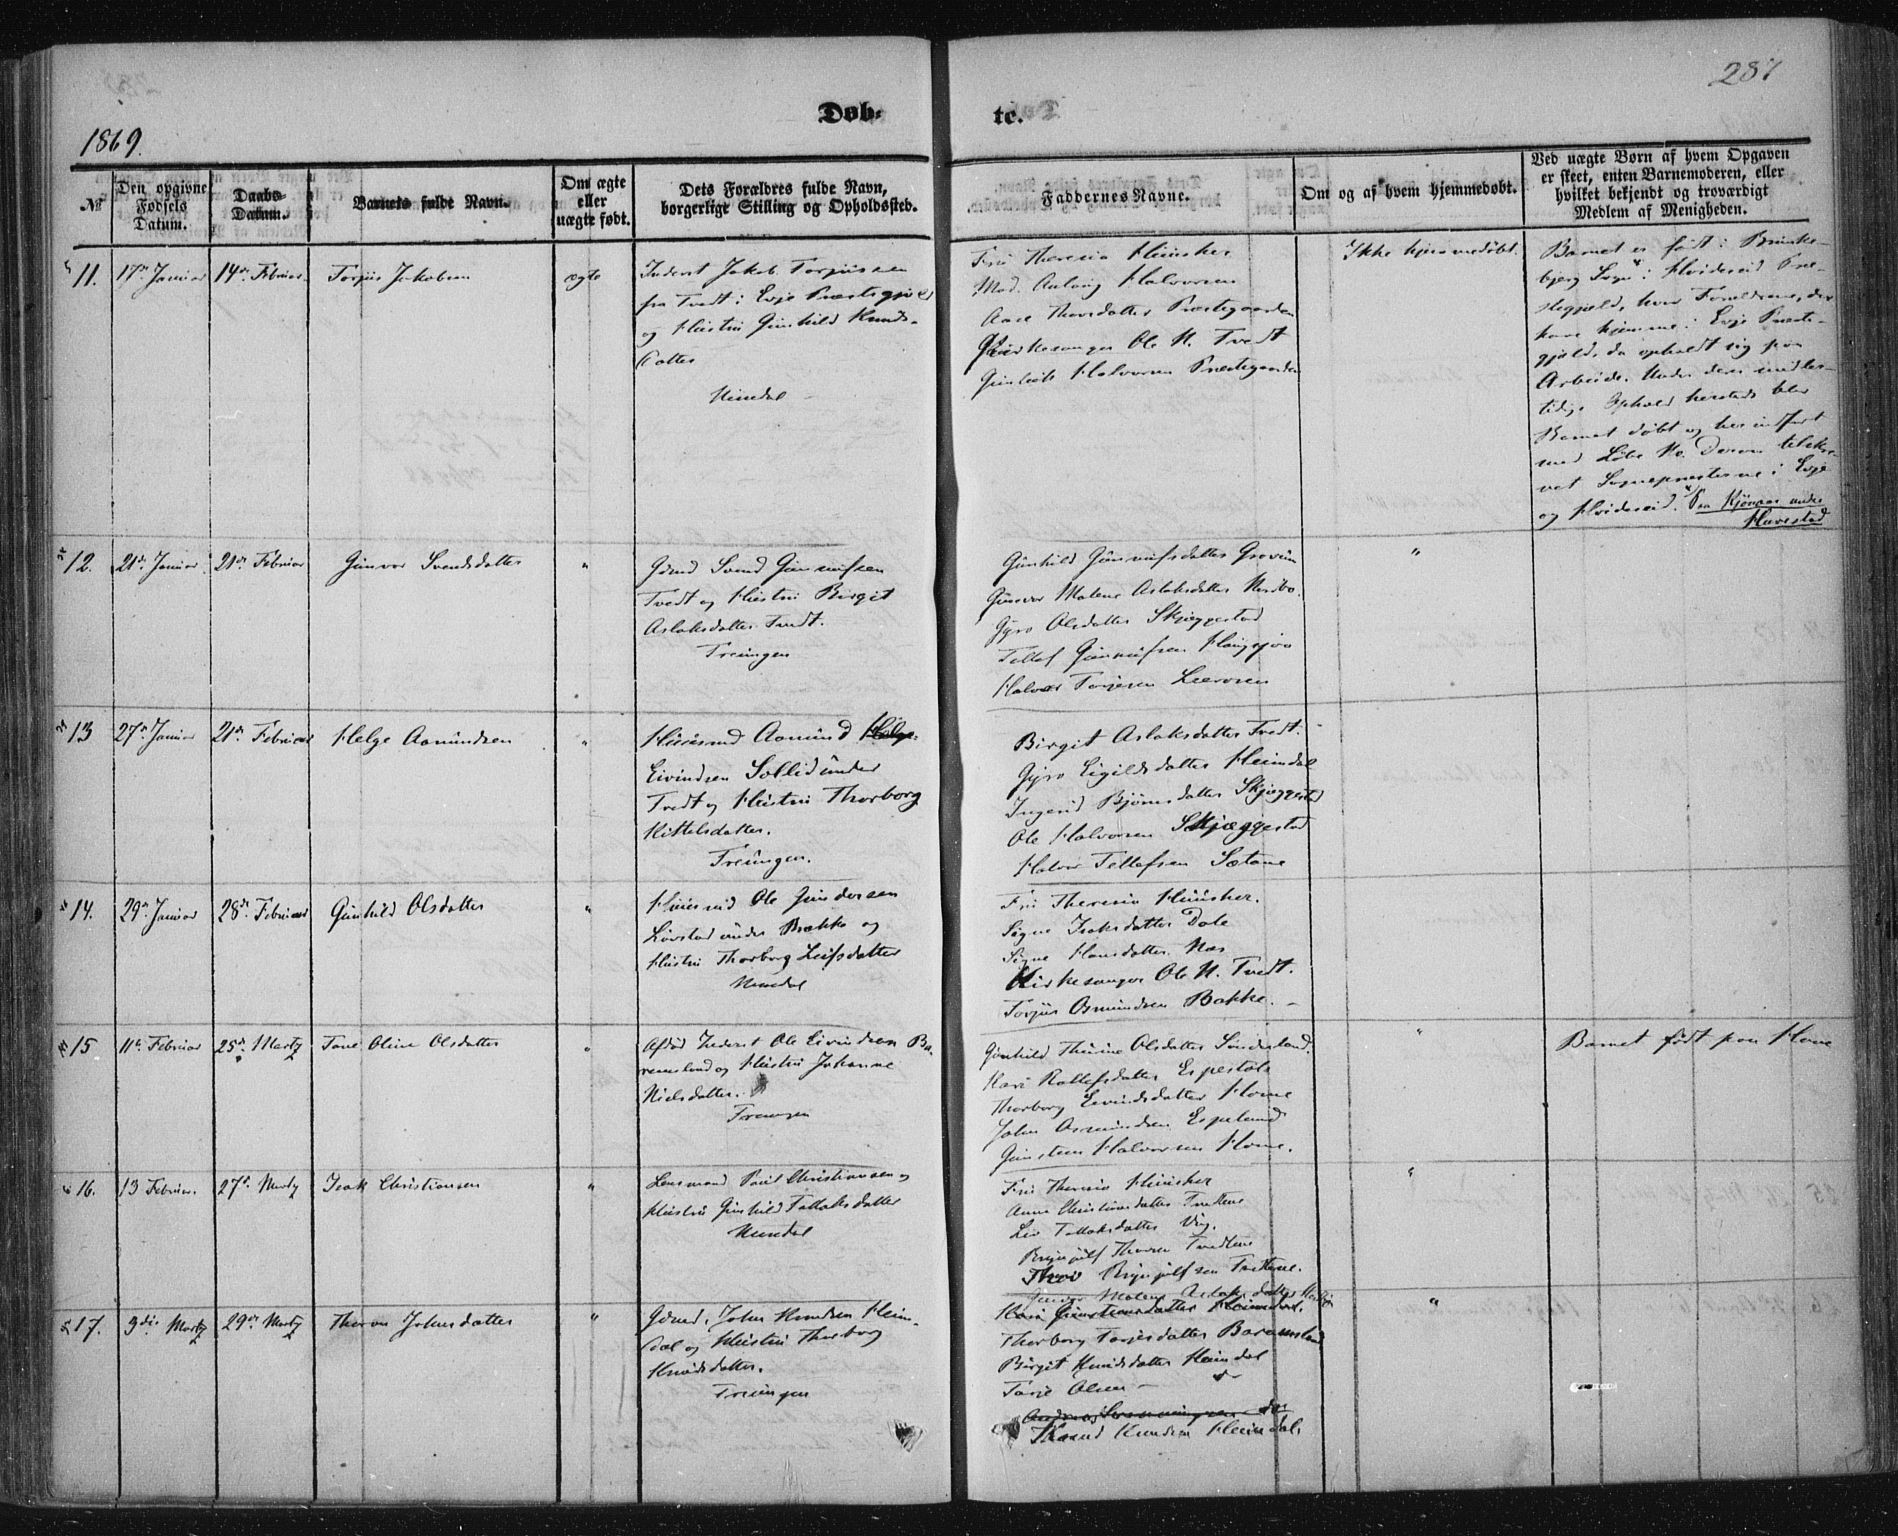 287
Døb-
te.
1869.
№
Den opgivne
Fødsels
Datum.
Daabs-
Datum.
Barnets fulde Navn.
Om ægte
eller
uægte født.
Dets Forældres fulde Navn,
borgerlige Stilling og Opholdssted.
Faddernes Navne.
Om og af hvem hjemmedøbt.
Ved uægte Børn af hvem Opgaven
er skeet, enten Barnemoderen, eller
hvilket bekjendt og troværdigt
Medlem af Menigheden.
11.
17de Januar
14de Februar
Torjus Jakobsen
ægte
Inderst Jakob Torjussen
fra Tvedt i Evje Præstegjeld
og Hustru Gunhild Knuds-
datter
Nissedal
Fru Theresia
Mad. Aslaug Halvorsen
Aase Thorsdatter Præstegaarden
Kirkesanger Ole N. Tvedt
Halvorsen Præstegaarden
Ikke hjemmedøbt.
Barnet er født i Brunke-
bjerg Sogn i Hvideseid Præ-
stegjeld, hvor Forældrene, der
have hjemme i Evje Præste-
gjeld, da opholdt sig paa
Arbeide. Under deres midler-
tidige Ophold hersteds blev
Barnet døbt og her indført
med Løbe No. Derom tilskre-
vet Sognepræsterne i Evje
og Hvideseid.
12.
21de Januar
21de Februar
Gunvor Svendsdatter
"
Gdmd Svend Gunnufsen
Tvedt og Hustru Birgit
Aslaksdatter Tvedt.
Treungen
Gunhild Gunnufsdatter
Gunvor Malene Aslaksdatter
Gyro Olsdatter Skjeggestad
Tellef Gunnufsen Haugsjaa
Halvor Torjesen
"
13
27de Januar
21de Februar
Helge Aamundsen
"
Huusmd Aamund Helge-
Eivindsen Sollid under
Tvedt og Hustru Thorborg
Kittelsdatter.
Treungen.
Birgit Aslaksdatter Tvedt.
Gyro Eigildsdatter Heimdal
Ingerid Bjørnsdatter Skjeggestad
Ole Halvorsen Skjæggestad
Halvor Tellefsen Sætane
14.
29de Januar
28de Februar
Gunhild Olsdatter
"
Huusmd Ole Gundersen
Løvstad under Bakke og
Hustru Thorborg Leifsdatter
Nissedal
Fru Theresia
Signe Isaksdatter Dale
Signe Hansdatter Næs
Kirkesanger Ole N. Tvedt.
Torjus Osmundsen Bakke.
15
11te Februar
25de Martz
Tone Oline Olsdatter
"
Afdød Inderst Ole Eivindsen Ba-
remsland og Hustru Johanne
Nielsdatter.
Treungen
Gunhild Thurine Olsdatter Sønderland.
Kari Rollefsdatter Espestøl
Thorborg Eivindsdatter Home
John Osmundsen Espelund
Gunsteen Halvorsen Home.
"
Barnet født paa Home
16.
13 Februar.
27de Martz
Isak Christiansen
"
Lensmand Poul Christiansen og
Hustru Gunhild Tellaksdatter
Nissedal
Fru Theresia
Anne Christensdatter Tveitene
Liv Tellaksdatter Vig.
Brynjulf Thorsen Tvedtene
Thor Brynjulfsen Tvettene.
"
17.
3die Martz
29de Martz
Thoron Johnsdatter
"
Gdmd. John Knudsen Heim-
dal og Hustru Thorborg
Knudsdatter.
Treungen
Gunvor Malene Aslaksdatter
Kari Gunsteensdatter Heimdal.
Thorborg Torjusdatter Baramsland
Birgit Knudsdatter Heimdal
Tarje Olsen
Knud Knudsen Heimdal.
"